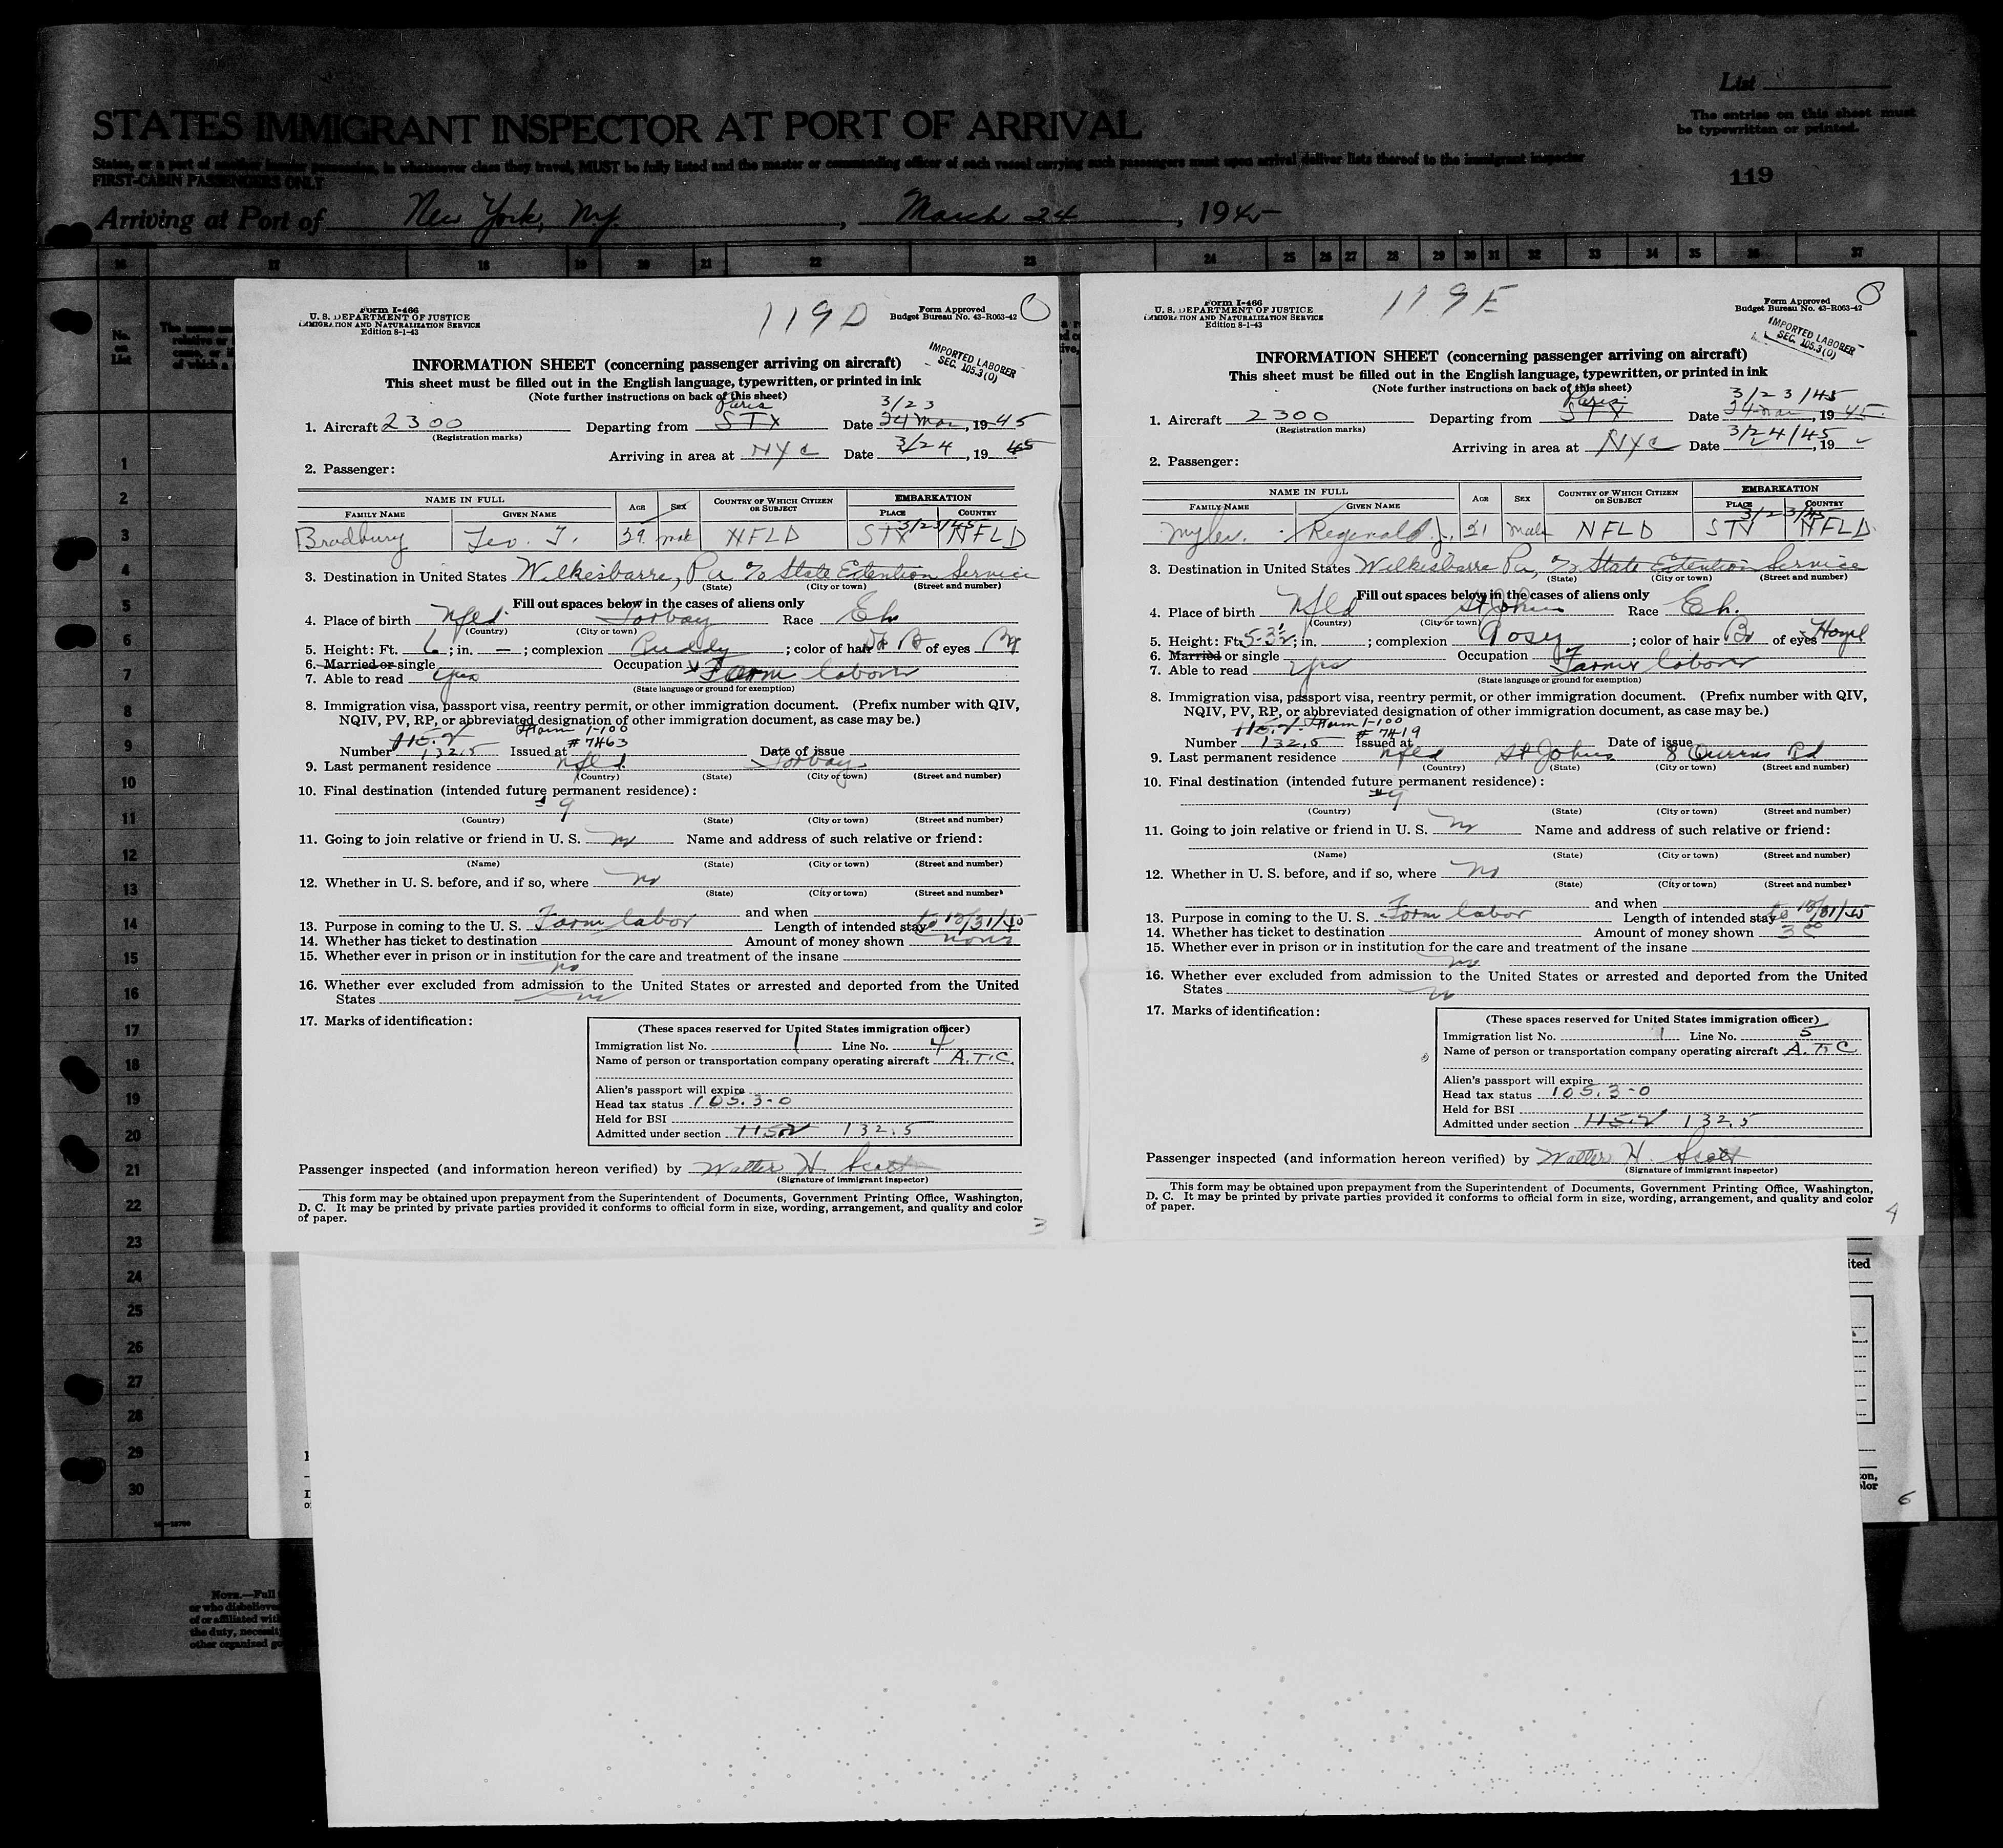 List
The entries on this sheet must
be typewritten or printed.
STATES IMMIGRANT INSPECTOR AT PORT OF ARRIVAL
States, or a part of another insular possession, in whatsoever class they travel, MUST be fully listed and the master or commanding officer of each vessel carrying such passengers must upon arrival deliver lists thereof to the immigrant inspector
FIRST-CABIN PASSENGERS ONLY
119
Arriving at Port of New York, N.Y. , March 24 , 1945
16 17 18 19 20 21 22 23 24 25 26 27 28 29 30 31 32 33 34 35 36 37
No.
on
List
1
2
3
4
5
6
7
8
9
10
11
12
13
14
15
16
17
18
19
20
21
22
23
24
25
26
27
28
29
30
NOTE.—Full
or who disbelieve
of or affiliated with
the duty, necessity
other organized go
Form I-466
U. S. DEPARTMENT OF JUSTICE
IMMIGRATION AND NATURALIZATION SERVICE
Edition 8-1-43
119 D
Form Approved
Budget Bureau No. 43-R063-42
IMPORTED LABORER
SEC. 105.3(0)
INFORMATION SHEET (concerning passenger arriving on aircraft)
This sheet must be filled out in the English language, typewritten, or printed in ink
(Note further instructions on back of this sheet)
Paris 3/23
1. Aircraft 2300 Departing from STX Date 24 Mar , 1945
(Registration marks)
Arriving in area at NYC Date 3/24 , 19 45
2. Passenger:
NAME IN FULL AGE SEX COUNTRY OF WHICH CITIZEN OR SUBJECT EMBARKATION
FAMILY NAME GIVEN NAME PLACE COUNTRY
3/23/45
Bradbury Leo. J. 29 male NFLD STX NFLD
3. Destination in United States Wilkesbarre, Pa % State Extention Service
(State) (City or town) (Street and number)
Fill out spaces below in the cases of aliens only
4. Place of birth Nfld Torbay Race Eh
(Country) (City or town)
5. Height: Ft. 6 ; in. — ; complexion Ruddy ; color of hair of eyes
6. Married or single Occupation Farm labor
7. Able to read yes
(State language or ground for exemption)
8. Immigration visa, passport visa, reentry permit, or other immigration document. (Prefix number with QIV,
NQIV, PV, RP, or abbreviated designation of other immigration document, as case may be.)
Form I-100
# 7463
Number 132.5 Issued at Date of issue
9. Last permanent residence Nfld Torbay
(Country) (State) (City or town) (Street and number)
10. Final destination (intended future permanent residence):
#9
(Country) (State) (City or town) (Street and number)
11. Going to join relative or friend in U. S. no Name and address of such relative or friend:
(Name) (State) (City or town) (Street and number)
12. Whether in U. S. before, and if so, where no
(State) (City or town) (Street and number)
and when
13. Purpose in coming to the U. S. Farm labor Length of intended stay to 12/31/45
14. Whether has ticket to destination Amount of money shown none
15. Whether ever in prison or in institution for the care and treatment of the insane
no
16. Whether ever excluded from admission to the United States or arrested and deported from the United
States no
17. Marks of identification:
(These spaces reserved for United States immigration officer)
Immigration list No. 1 Line No. 4
Name of person or transportation company operating aircraft A.T.C.
Alien's passport will expire
Head tax status 105.3-0
Held for BSI
Admitted under section 115.2 132.5
Passenger inspected (and information hereon verified) by Walter H. Scott
(Signature of immigrant inspector)
This form may be obtained upon prepayment from the Superintendent of Documents, Government Printing Office, Washington,
D. C. It may be printed by private parties provided it conforms to official form in size, wording, arrangement, and quality and color
of paper.
3
Form I-466
U. S. DEPARTMENT OF JUSTICE
IMMIGRATION AND NATURALIZATION SERVICE
Edition 8-1-43
119 E
Form Approved
Budget Bureau No. 43-R063-42
IMPORTED LABORER
SEC. 105.3(0)
INFORMATION SHEET (concerning passenger arriving on aircraft)
This sheet must be filled out in the English language, typewritten, or printed in ink
(Note further instructions on back of this sheet)
Paris 3/23/45
1. Aircraft 2300 Departing from STX Date 24 Mar , 1945
(Registration marks)
Arriving in area at NYC Date 3/24/45 , 19
2. Passenger:
NAME IN FULL AGE SEX COUNTRY OF WHICH CITIZEN OR SUBJECT EMBARKATION
FAMILY NAME GIVEN NAME PLACE COUNTRY
3/23/45
Myler. Reginald J. 21 Male NFLD STN NFLD
3. Destination in United States Wilkesbarre Pa, % State Extention Service
(State) (City or town) (Street and number)
Fill out spaces below in the cases of aliens only
4. Place of birth Nfld St Johns Race Eh.
(Country) (City or town)
5. Height: Ft. 5-3½ ; in. ; complexion Rosey ; color of hair Br of eyes Hazel
6. Married or single Occupation Farm labor
7. Able to read yes
(State language or ground for exemption)
8. Immigration visa, passport visa, reentry permit, or other immigration document. (Prefix number with QIV,
NQIV, PV, RP, or abbreviated designation of other immigration document, as case may be.)
Form I-100
# 7419
Number 132.5 Issued at Date of issue
9. Last permanent residence Nfld St Johns 8 Queens Rd
(Country) (State) (City or town) (Street and number)
10. Final destination (intended future permanent residence):
#9
(Country) (State) (City or town) (Street and number)
11. Going to join relative or friend in U. S. no Name and address of such relative or friend:
(Name) (State) (City or town) (Street and number)
12. Whether in U. S. before, and if so, where no
(State) (City or town) (Street and number)
and when
13. Purpose in coming to the U. S. Farm labor Length of intended stay to 12/31/45
14. Whether has ticket to destination Amount of money shown
15. Whether ever in prison or in institution for the care and treatment of the insane
no
16. Whether ever excluded from admission to the United States or arrested and deported from the United
States no
17. Marks of identification:
(These spaces reserved for United States immigration officer)
Immigration list No. 1 Line No. 5
Name of person or transportation company operating aircraft A.T.C
Alien's passport will expire
Head tax status 105.3-0
Held for BSI
Admitted under section 115.2 132.5
Passenger inspected (and information hereon verified) by Walter H. Scott
(Signature of immigrant inspector)
This form may be obtained upon prepayment from the Superintendent of Documents, Government Printing Office, Washington,
D. C. It may be printed by private parties provided it conforms to official form in size, wording, arrangement, and quality and color
of paper.
4
ited
ton,
olor
6